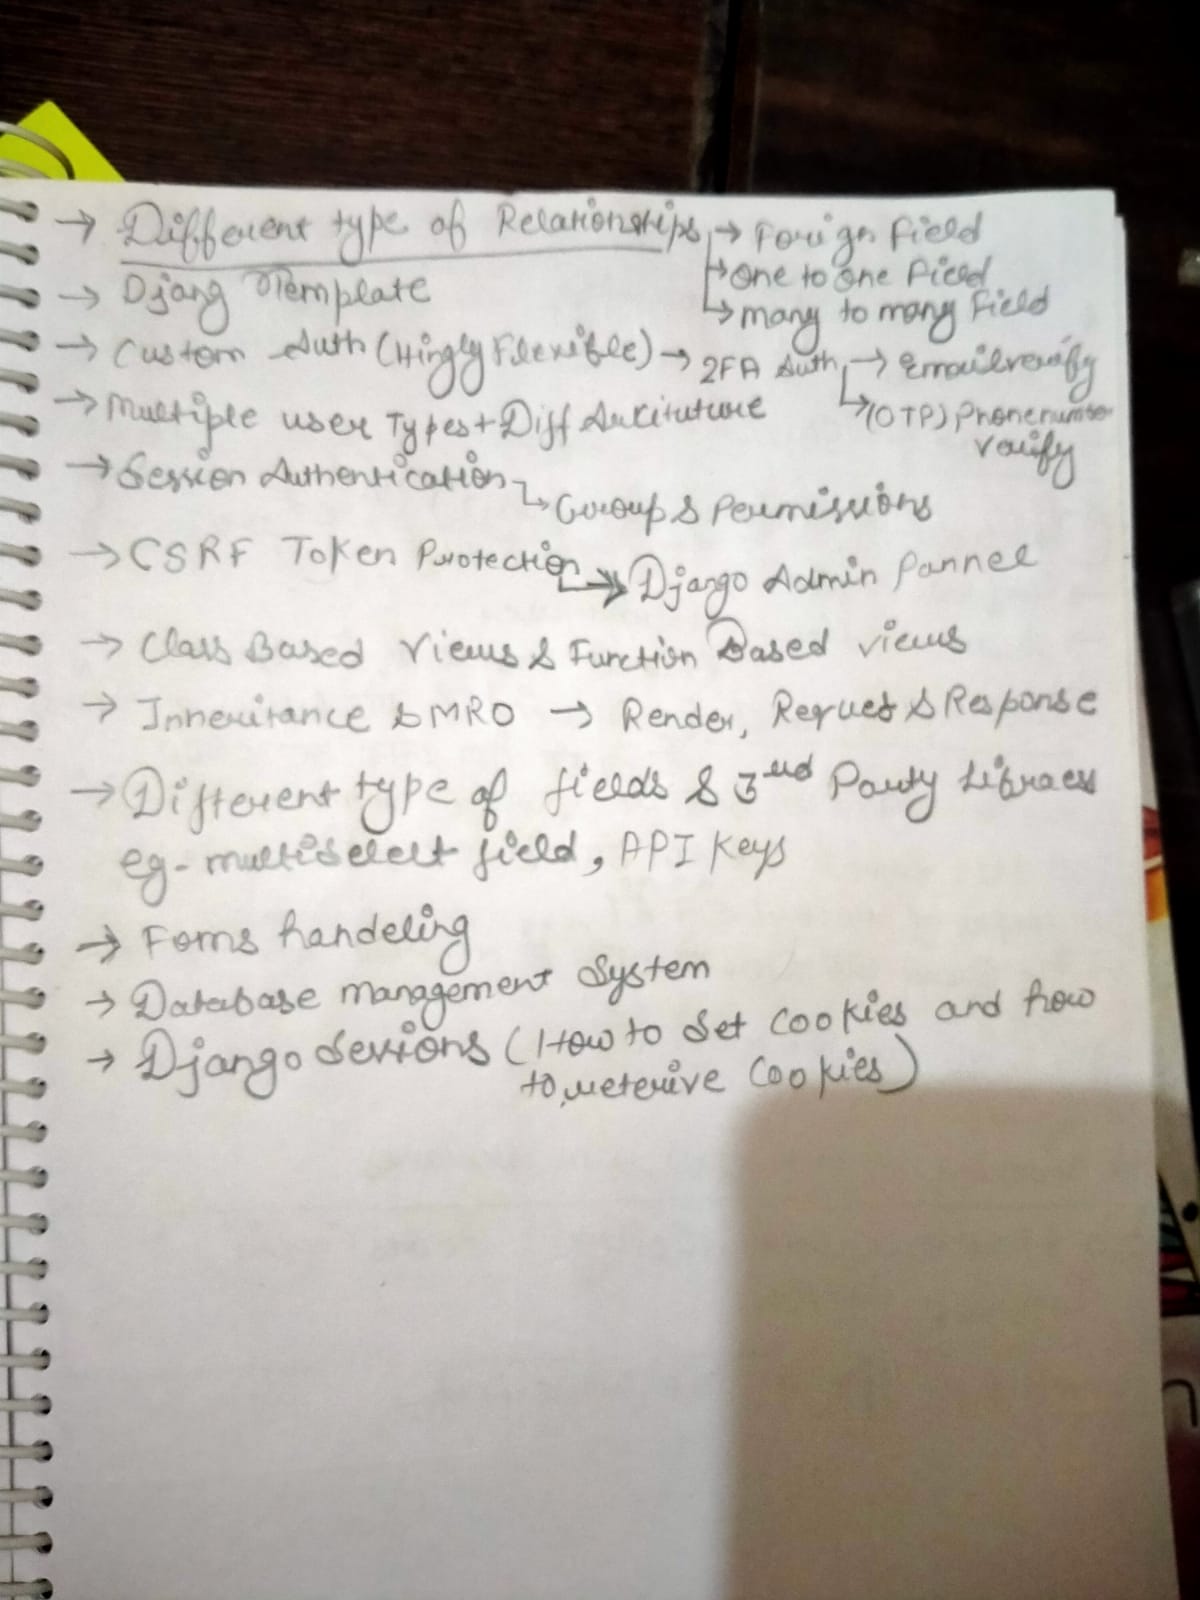 → Different type of Relationships → Forign field
→ one to one field
→ many to many field
→ Djang Template
→ Custom Auth (Hingly Flexible) → 2FA Auth → Email verify
→ (OTP) Phone number verify
→ Multiple user Types + Diff Arkituture
→ Session Authentication
→ Group & Permissions
→ CSRF Token Protection → Django Admin Pannel
→ Class Based Views & Function Based views
→ Inheritance & MRO → Render, Reques & Response
→ Different type of fields & 3rd Party
eg- multiselect field, API Keys
→ Foms handeling
→ Database management System
→ Django Sessions (How to Set Cookies and how
to reterive Cookies)